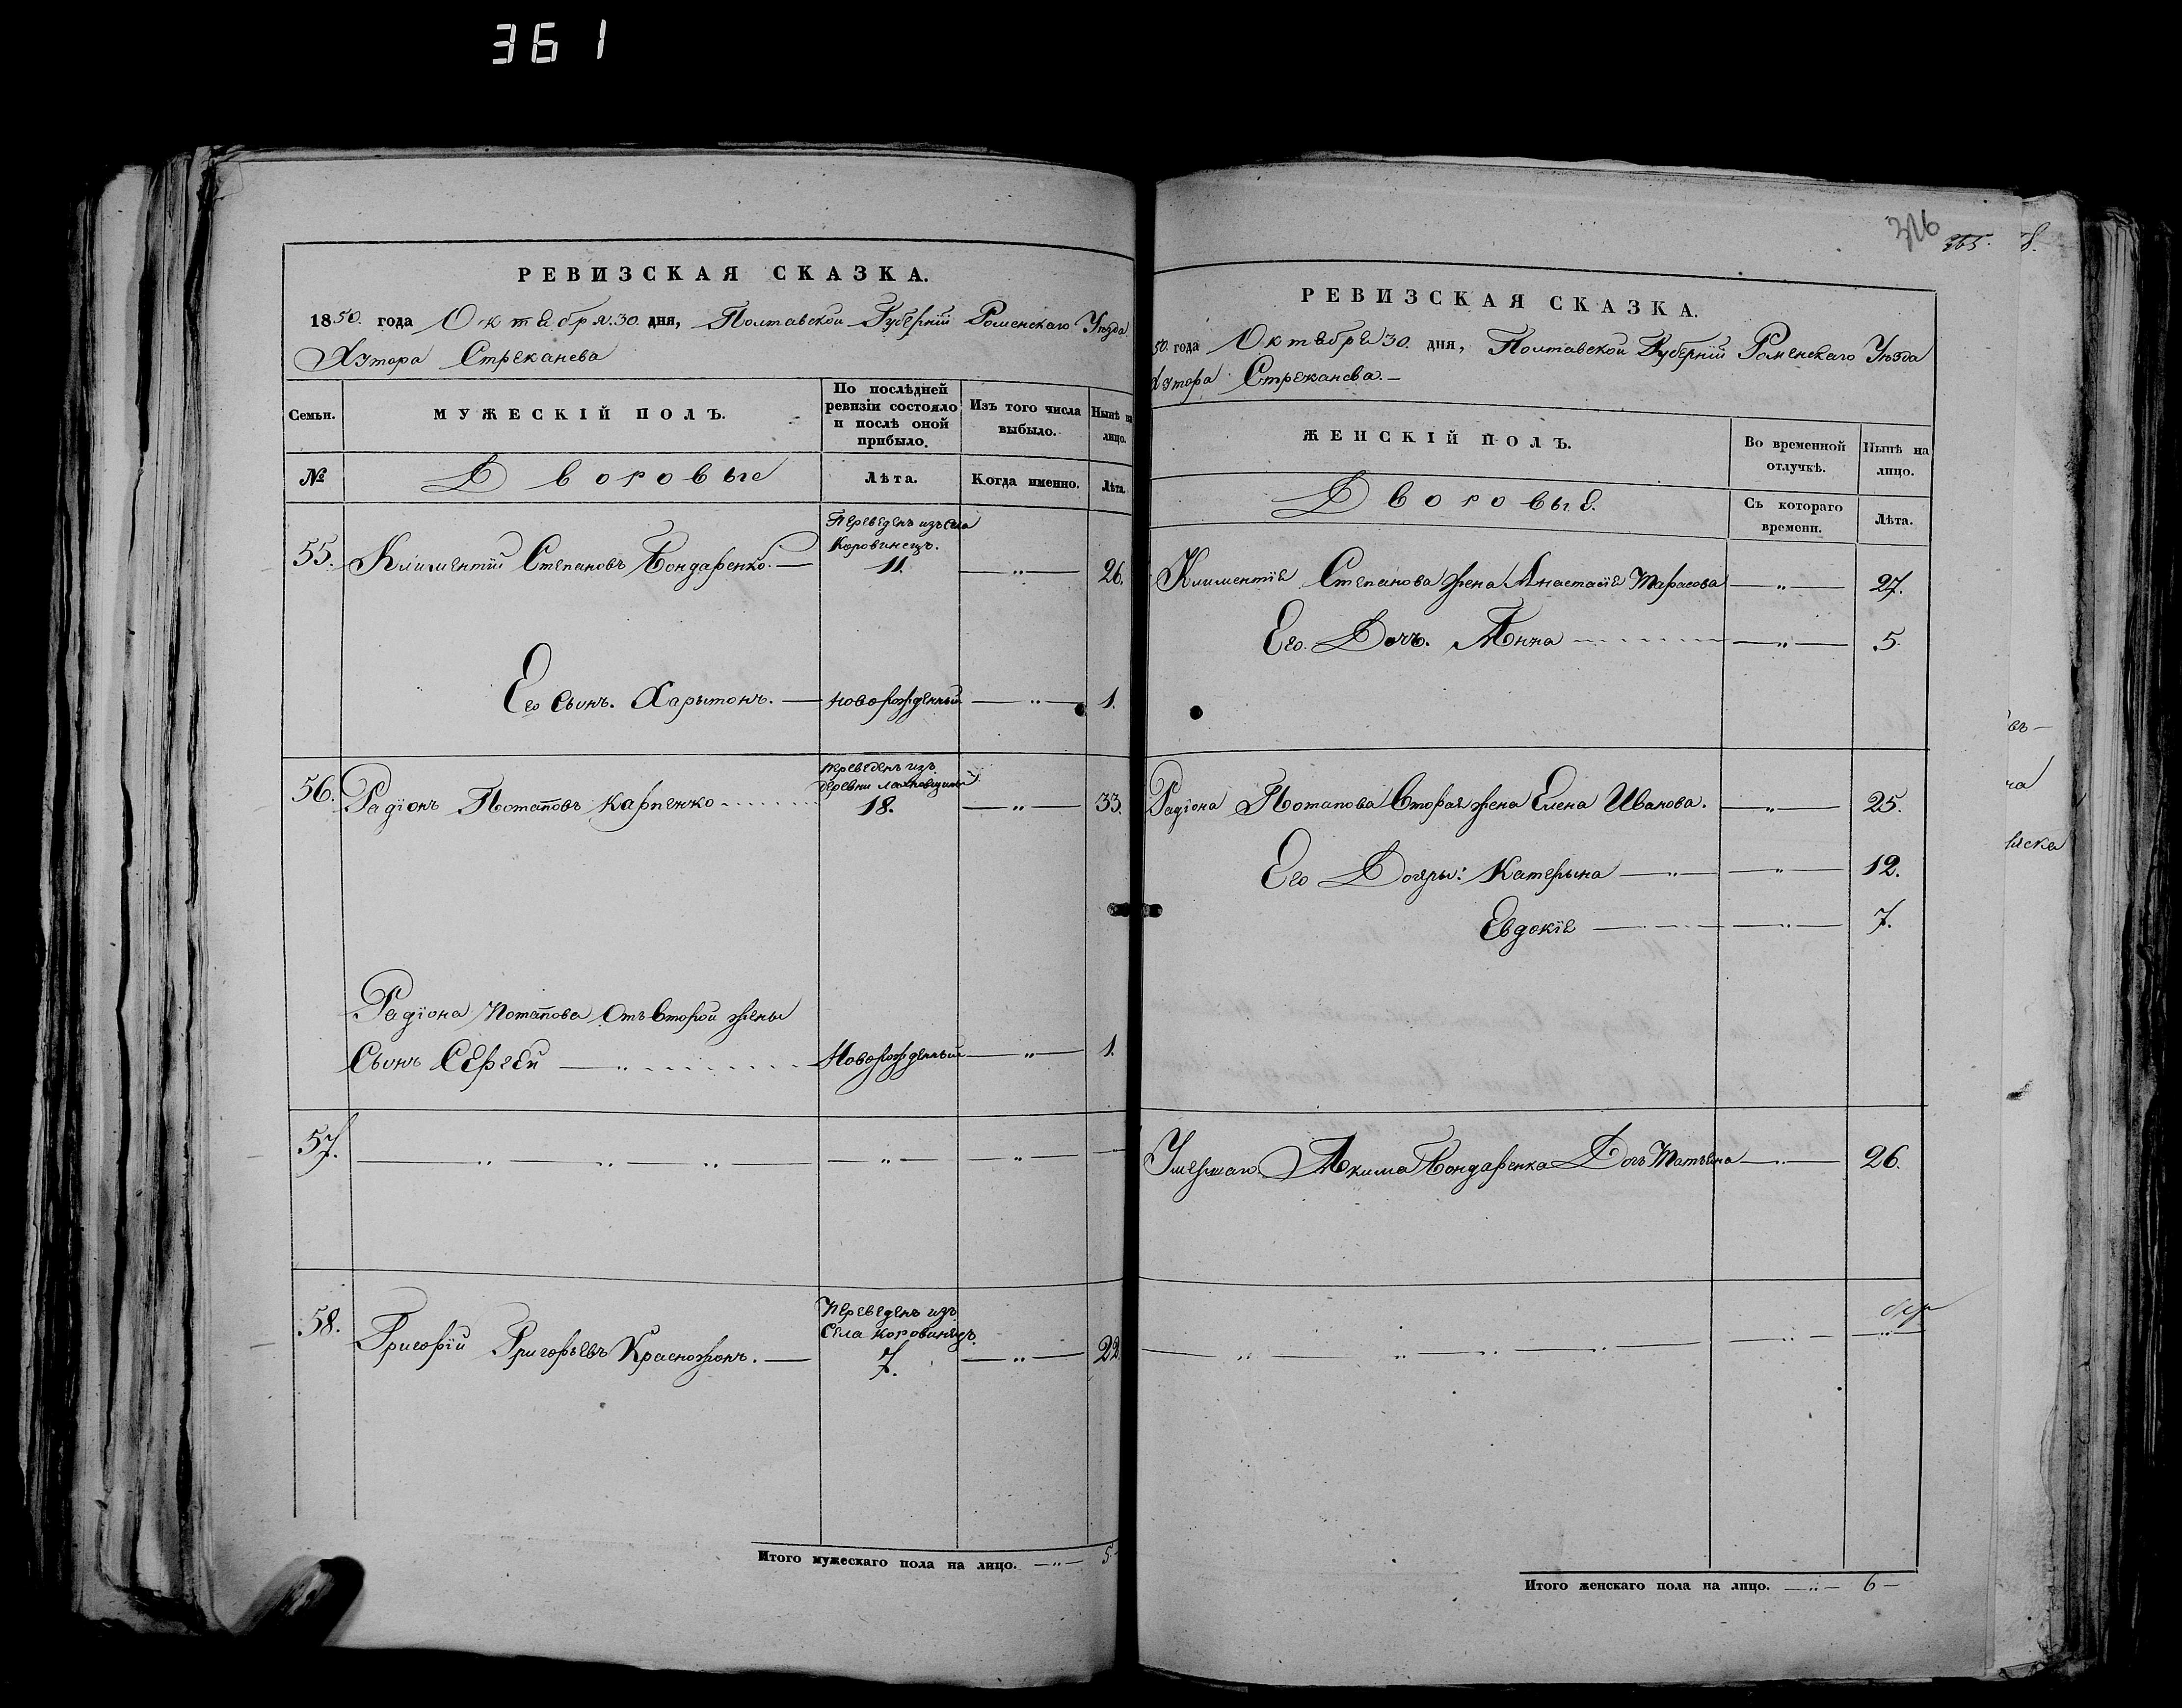 361
РЕВИЗСКАЯ СКАЗКА.
1850. года Октября. 30. дня, Полтавской Губернїи Роменскаго Уѣзда
Хутора Стрижанева
Семьи.
МУЖЕСКІЙ ПОЛЪ.
По послѣдней ревизіи состояло и послѣ оной прибыло.
Изъ того числа выбыло.
Нынѣ на лицо.
№
Дворовые
Лѣта.
Когда именно.
Лѣта.
55. Климентїй Степановъ Бондаренко.
Переведенъ изъ села
Коровинецъ.
11. 26.
Его Сынъ. Харытонъ. новорожденный 1.
56. Радїонъ Потаповъ Карпенко
переведенъ изъ
деревни
18. 33.
Радїона Потапова Отъ Второй жены
Сынъ Сергей Новорожденный 1.
57.
58. Григорїй Григорьевъ Красножонъ.
Переведенъ изъ
Села Коровинецъ.
7. 22.
Итого мужескаго пола на лицо. 5
316 365. 8.
РЕВИЗСКАЯ СКАЗКА.
50. года Октября 30. дня, Полтавской Губернїи Роменскаго Уѣзда
Хутора Стрижанева.
ЖЕНСКІЙ ПОЛЪ.
Во временной отлучкѣ.
Нынѣ на лицо.
Дворовые.
Съ котораго времени.
Лѣта.
Климентїя Степанова жена Анастасїя Тарасова 27.
Его. Дочь. Анна 5.
Радїона Потапова Вторая жена Елена Иванова. 25.
Его Дочеры: Катерына 12.
Евдокїя 7.
Умершаго Акима Бондаренка Дочь Татьяна 26.
Итого женскаго пола на лицо. 6